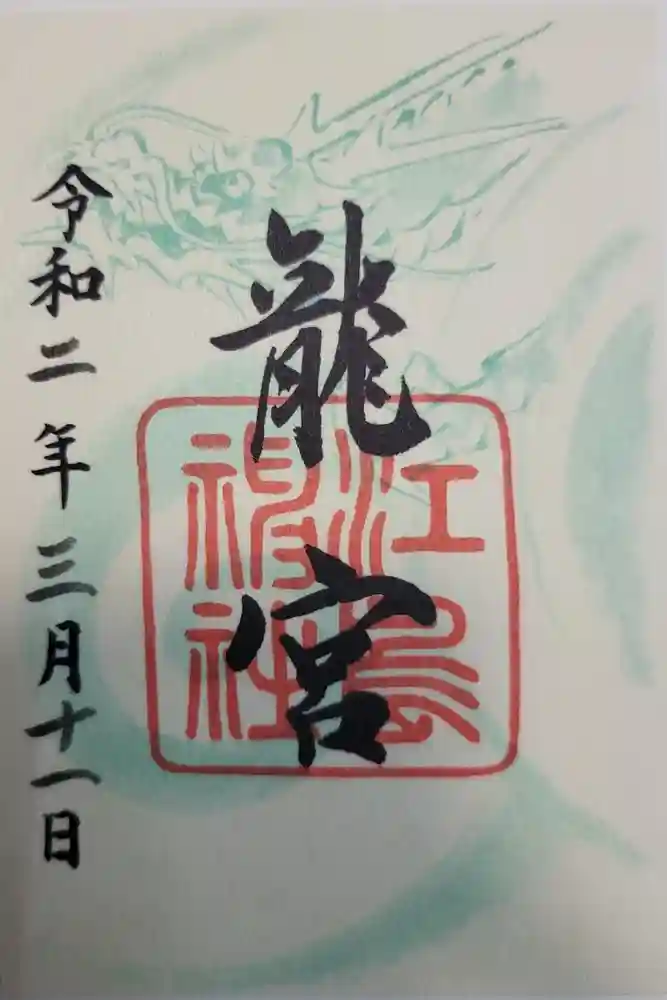 龍宮
江島
神社
令和二年三月十一日